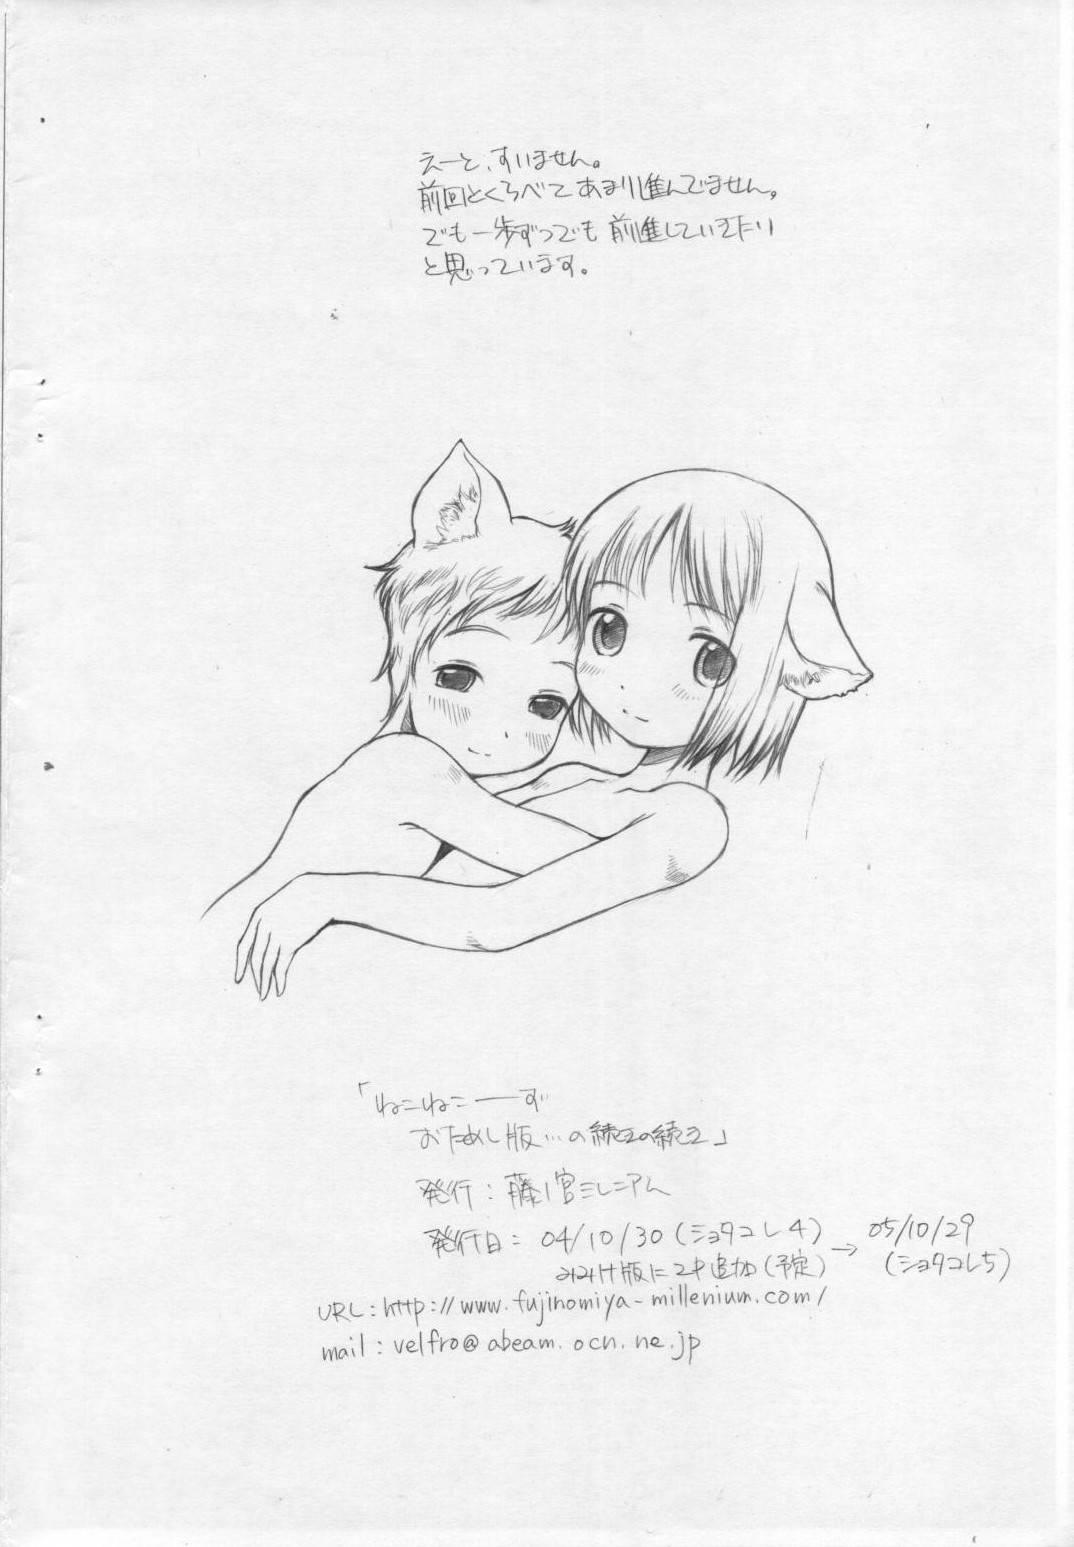 えーと、すいません。
前回とくらべてあまり進んでません。
でも一歩ずつでも前進していきたい
と思っています。
「ねこねこーず
おためし版…の続きの続き」
発行：藤ノ宮ミレニアム
発行日：04/10/30(ショタコレ4)→05/10/29
版に2P追加(予定) (ショタコレ5)
URL:http://www.fujinomiya-millenium.com/
mail:velfro@abeam.ocn.ne.jp